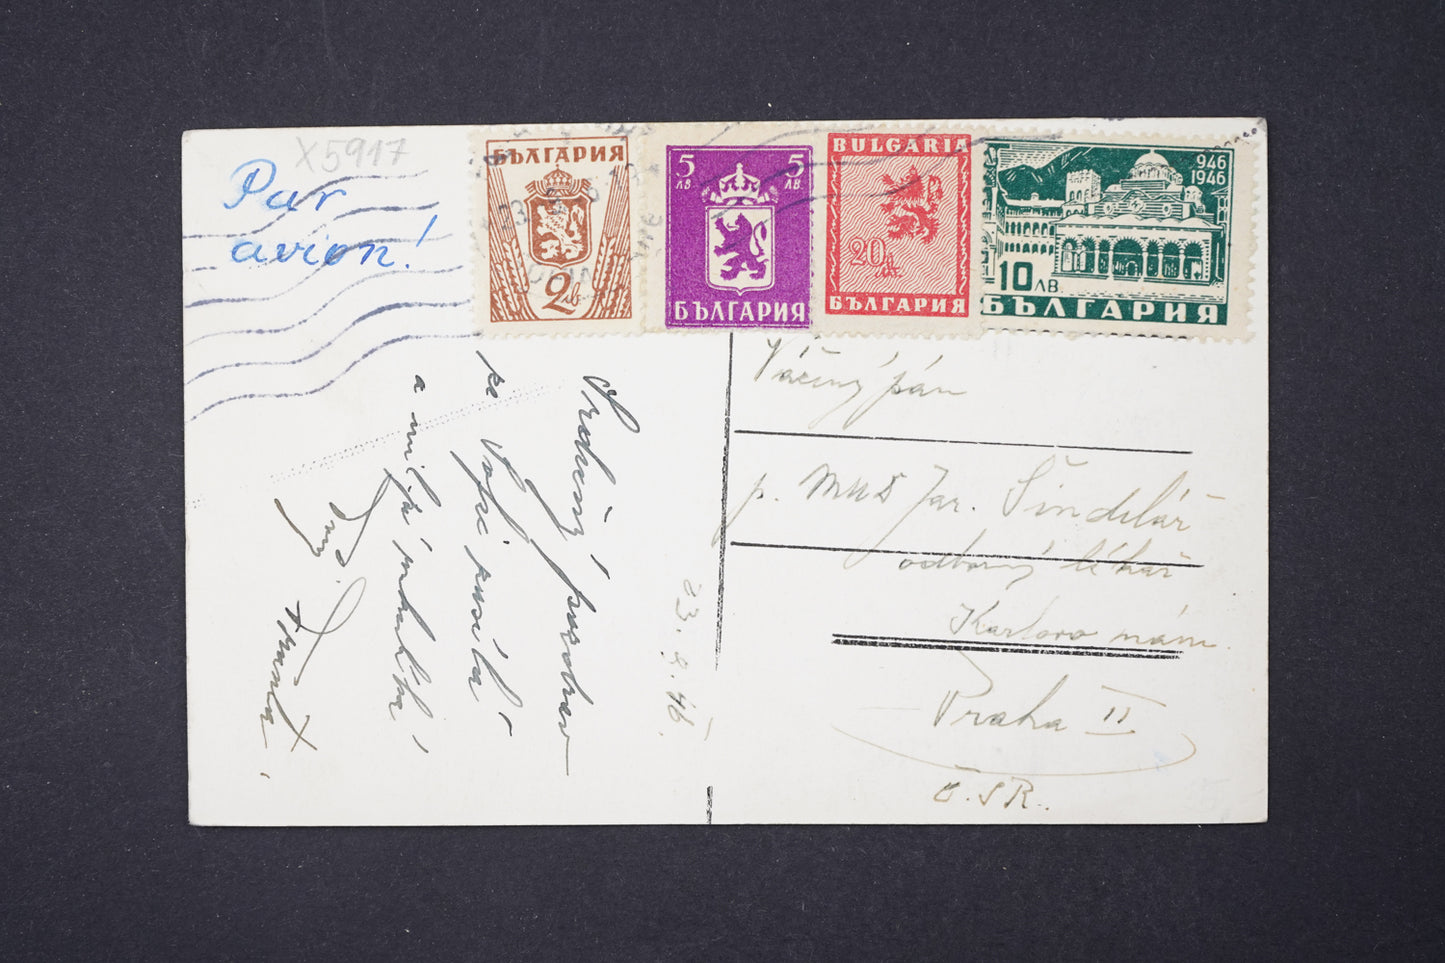 X5917
Par
avion!
БЪЛГАРИЯ
2 лв.
5 ЛВ. 5 ЛВ.
БЪЛГАРИЯ
BULGARIA
20 лв.
БЪЛГАРИЯ
946
1946
10 ЛВ.
БЪЛГАРИЯ
Srdečný pozdrav
ze Sofie posílá
a
23.8.46.
Vážený pán
p. MUD Jar. Šindelář
odborný lékař
Karlovo nám.
Praha II
Č.S.R.